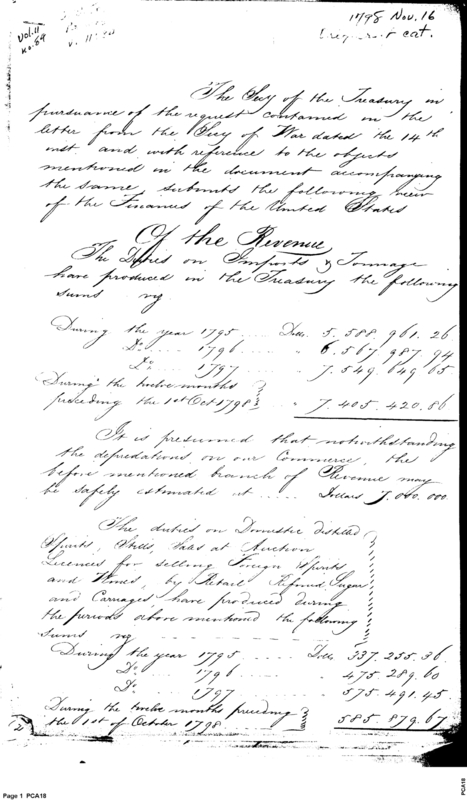 1798 Nov. 16
Vol. 11
no. 89
cat.
The Secy of the Treasury in
pursuance of the request contained in the
letter from the Secy of War dated the 14th
inst. and with reference to the objects
mentioned in the document accompanying
the same, submits the following view
of the Finances of the United States
Of the Revenue
The Duties on Imports & Tonnage
have produced in the Treasury the following
sums viz
During the year 1795 .... Dolls. 5.588.961.26
Do. .... 1796 .... " 6.567.987.94
Do. .... 1797 .... " 7.549.649.65
During the twelve months
preceding the 1st Oct 1798 " 7.405.420.86
It is presumed that notwithstanding
the depredations on our Commerce, the
before mentioned branch of Revenue may
be safely estimated at .... Dollars 7.000.000
The duties on Domestic distilled
Spirits, Stills, Sales at Auction
Licences for selling Foreign Spirits
and Wines, by Retail Refined Sugar
and Carriages, have produced during
the periods above mentioned the following
sums viz
During the year 1795 .... Dolls 337.255.36
Do. 1796 .... 475.289.60
Do. 1797 .... 575.491.45
During the twelve months preceding
the 1st of October 1798 .... 585.879.67
Page 1 PCA18
PCA18